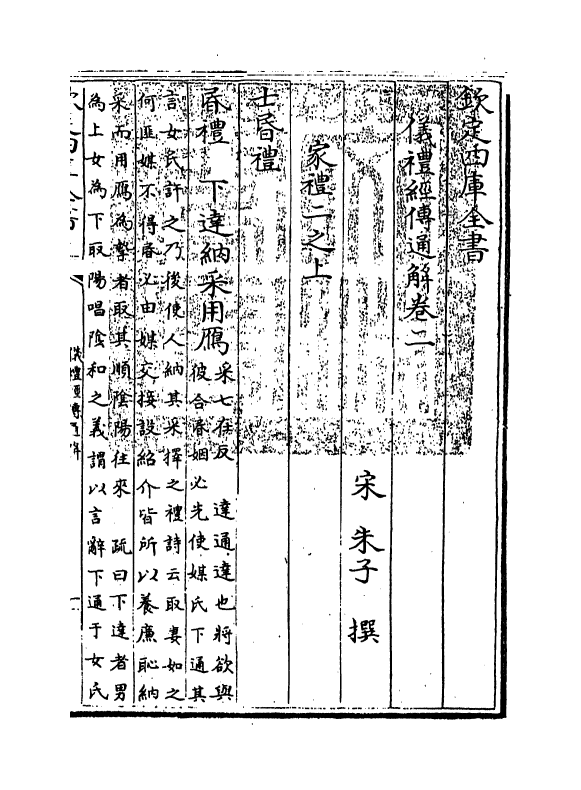 欽定四庫全書
儀禮經傳通解卷二
宋 朱子 撰
家禮二之上
士昏禮
昏禮 下達納采用鴈采七在反 達通達也將欲與
彼合昏姻必先使媒氏下通其
言女氏許之乃後使人納其采擇之禮詩云取妻如之
何匪媒不得昏必由媒交接設紹介皆所以養廉恥納
采而用鴈為摯者取其順陰陽往來 疏曰下達者男
為上女為下取陽唱陰和之義謂以言辭下通于女氏
儀禮經傳通解
一